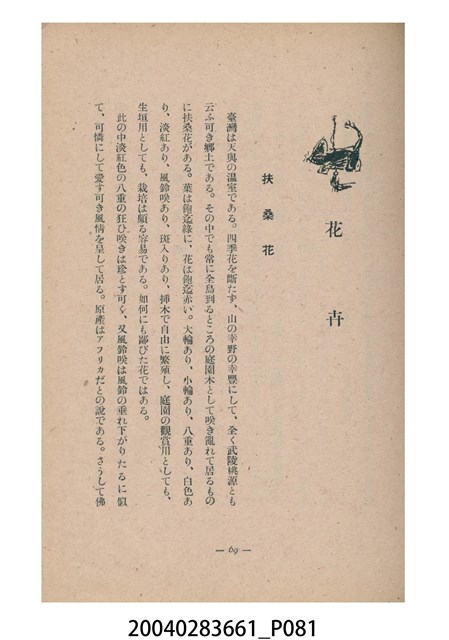 花卉
扶桑花
臺灣は天與の温室である。四季花を斷たず、山の幸野の幸豐にして、全く武陵桃源とも
云ふ可き鄕土である。その中でも常に全島到るところの庭園木として咲き亂れて居るもの
に扶桑花がある。葉は飽迄綠に、花は飽迄赤い。大輪あり、小輪あり、八重あり、白色あ
り、淡紅あり、風鈴咲あり、斑入りあり、揷木で自由に繁殖し、庭園の觀賞用としても、
生垣用としても、栽培は頗る容易である。如何にも鄙びた花ではある。
此の中淡紅色の八重の狂ひ咲きは珍とす可く、又風鈴咲は風鈴の垂れ下がりたるに似
て、可憐にして愛す可き風情を呈して居る。原產はアフリカだとの說である。さうして佛
— 69 —
20040283661_P081